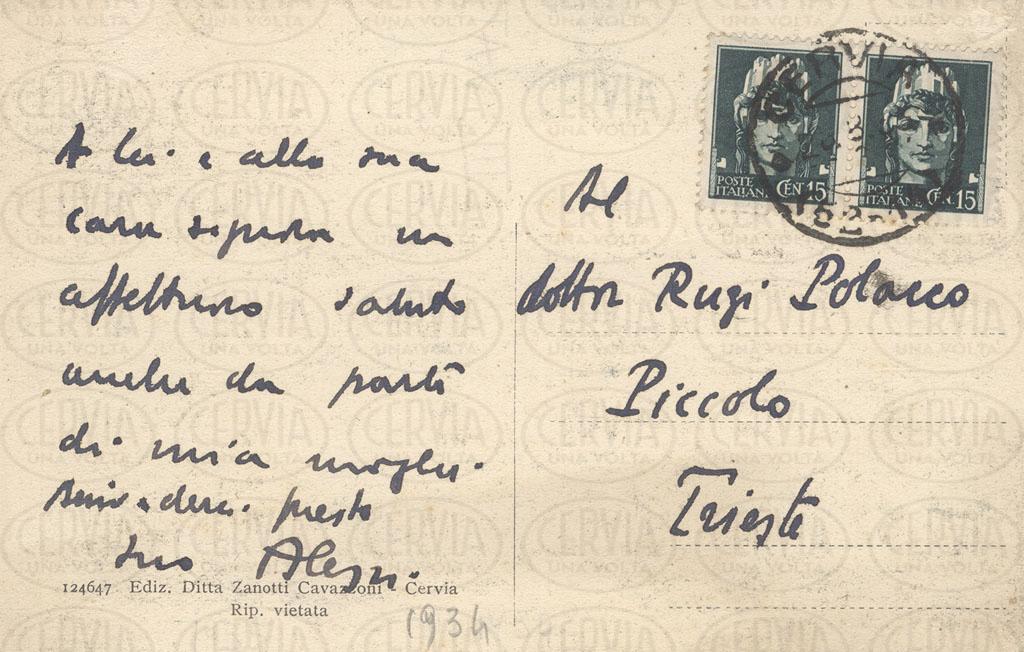 A lei e alla sua
cara signora un
affettuoso saluto
anche da parte
di mia moglie.
Arrivederci presto
suo
124647 Ediz. Ditta Zanotti Cavazzoni Cervia
Rip. vietata
1934
POSTE ITALIANE CEN. 15
POSTE ITALIANE CEN. 15
CERVIA
Al
dottor Rugi Polacco
Piccolo
Trieste
CERVIA
UNA VOLTA